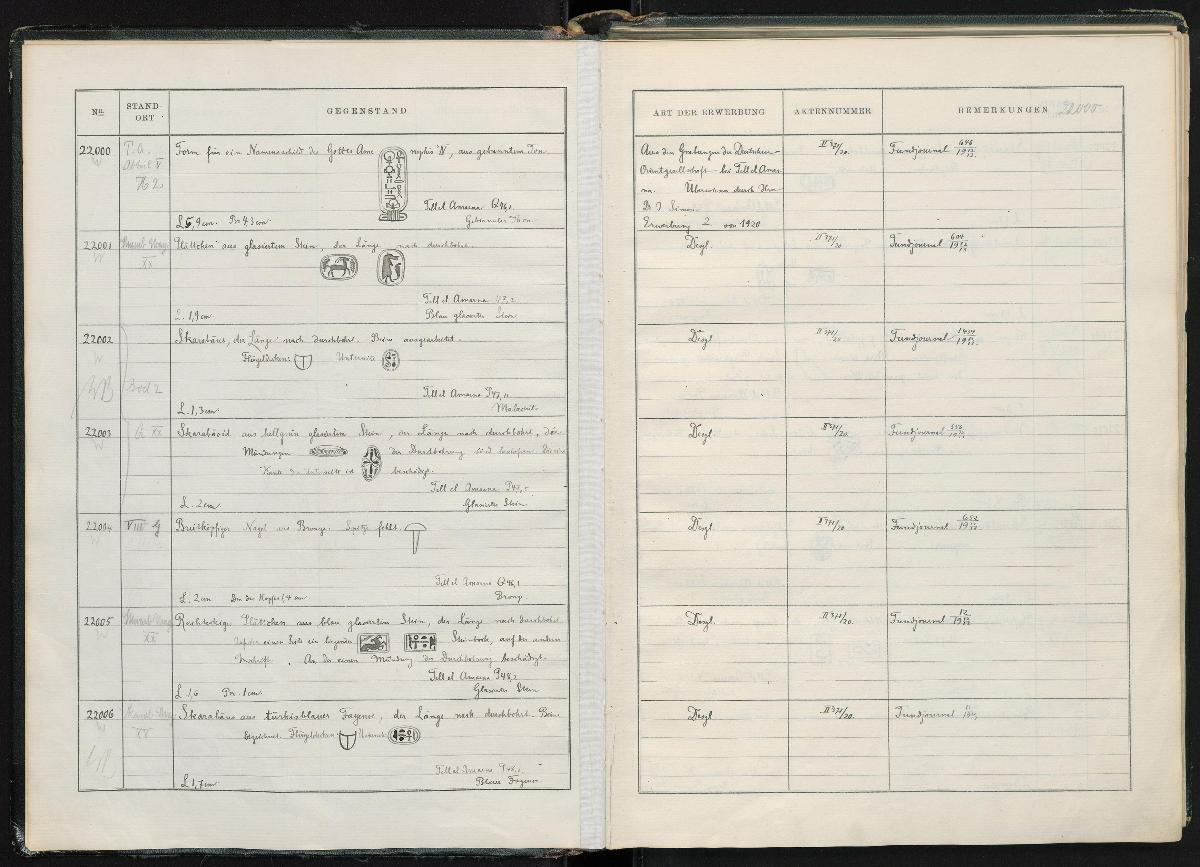 Nu.
STAND-
ORT
GEGENSTAND
22000
W
P. a.
Form für ein Namensschild des Gottes Ame nophis IV, aus gebranntem Ton.
Tell el Amarna Q 46,1
L 5,9 cm. Br 4,3 cm
Gebrannter Thon
22001
W
XX
Plättchen aus glasiertem Stein, der Länge nach durchbohrt.
Tell el Amarna 47,2
L. 1,9 cm.
Blau glasierter Stein
22002
W
Skarabäus, der Länge nach durchbohrt. Beine ausgearbeitet.
Flügeldecken: Unterseite
Tell el Amarna P47,11
L. 1,3 cm
Malachit
22003
W
XX
Skarabäoid aus hellgrün glasiertem Stein, der Länge nach durchbohrt, Die
Mündungen der Durchbohrung sind
Kante der Unterseite ist beschädigt.
Tell el Amarna P47,
L. 2 cm
Glasierter Stein
22004
W
VIII G
Breitköpfiger Nagel aus Bronze. Spitze fehlt.
Tell el Amarna Q 46,1
L. 2 cm Dm des Kopfes 1,4 cm
Bronze
22005
W
XX
Rechteckige Plättchen aus blau glasiertem Stein, der Länge nach durchbohrt
Auf der einen Seite ein liegender Steinbock, auf der andern
Inschrift. An der einen Mündung der Durchbohrung beschädigt.
Tell el Amarna P48,2
L 1,6 Br. 1 cm.
Glasierter Stein
22006
W
XX
Skarabäus aus türkisblauer Fayence, der Länge nach durchbohrt. Beine
Flügeldecken: Unterseite
Tell el Amarna P48,1
L 1,7 cm
Blaue Fayence
ART DER ERWERBUNG
AKTENNUMMER
BEMERKUNGEN
22000
Aus den Grabungen der Deutschen-
Orientgesellschaft bei Tell el Amar-
na. Überwiesen durch Herrn
Dr J. Simon
Erwerbung 2 von 1920
II 371/20.
Fundjournal 646 1912/13
Desgl.
II 371/20
Fundjournal 604 1912/13
Desgl
II 371/20
Fundjournal
Desgl.
II 371/20.
Fundjournal
Desgl.
II 371/20
Fundjournal 652 1912/13
Desgl.
II 371/20.
Fundjournal 12
Desgl.
II 371/20.
Fundjournal